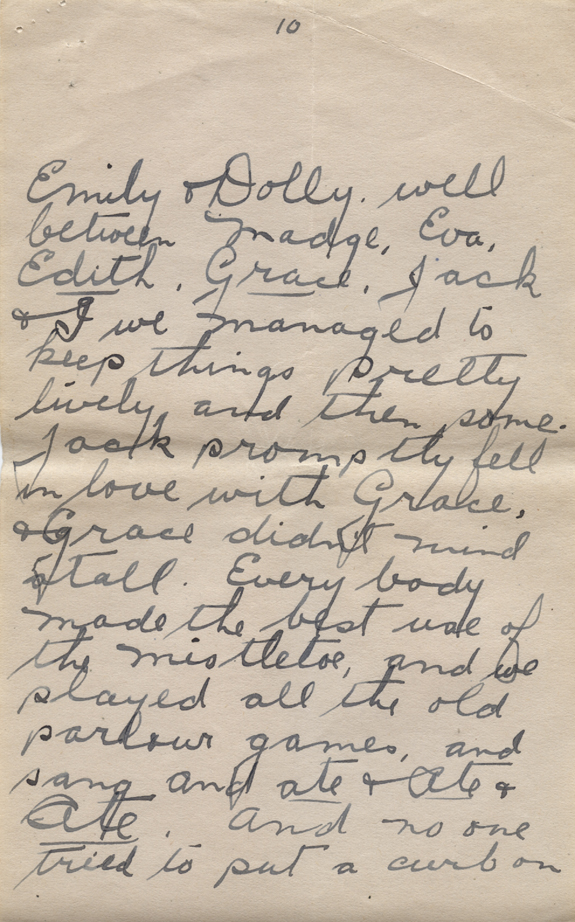 10
Emily & Dolly. well
between Madge, Eva,
Edith, Grace, Jack
& I we managed to
keep things pretty
lively, and then some.
Jack promptly fell
in love with Grace,
& Grace didn't mind
atall. Every body
made the best use of
the mistletoe, and we
played all the old
parlour games, and
sang and ate & Ate &
Ate. And no one
tried to put a curb on